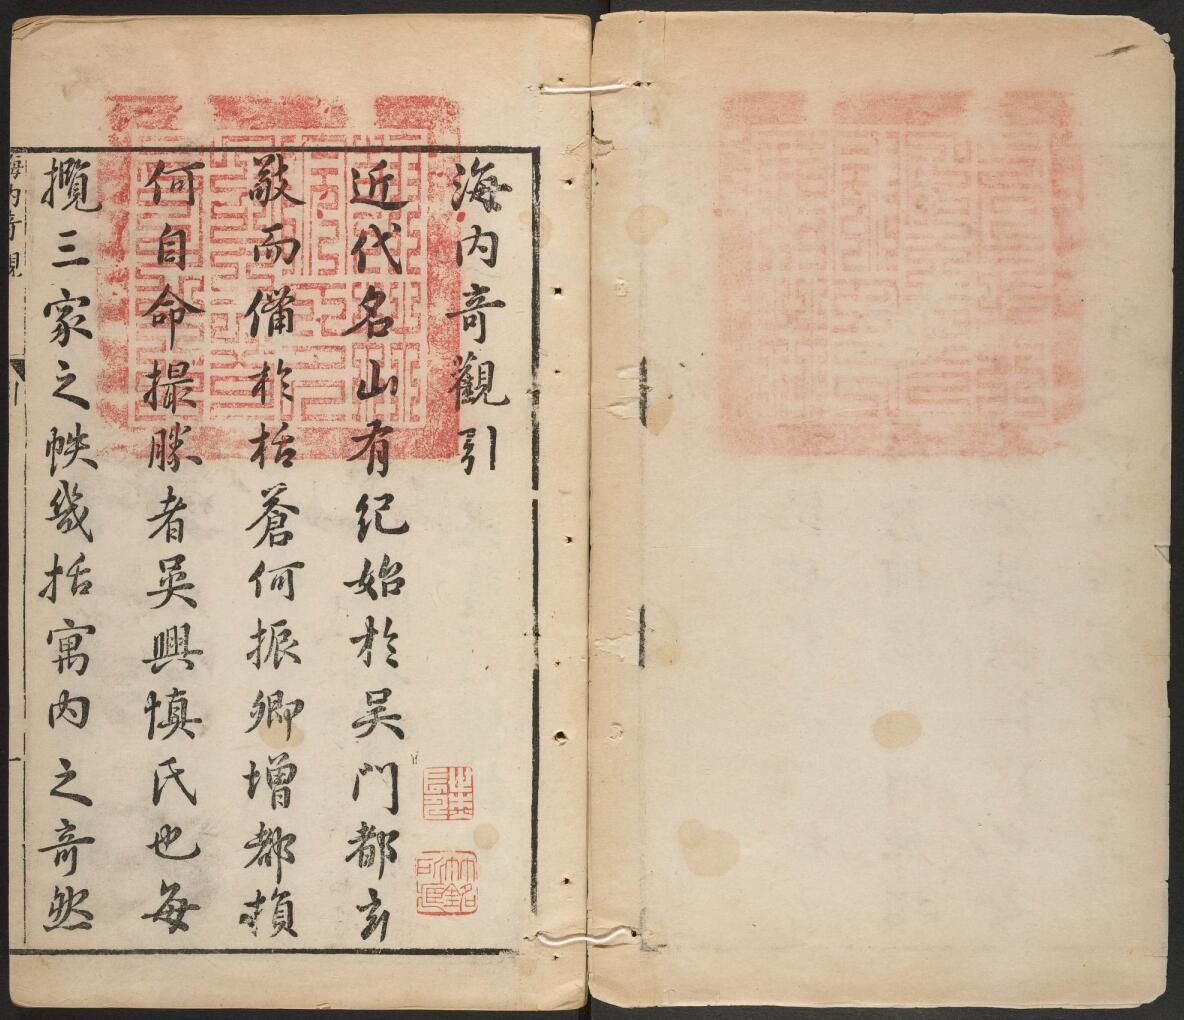 海内奇觀引
近代名山有紀始於吴門都玄
敬而備於栝蒼何振卿增都損
何自命撮勝者吳興慎氏也每
攬三家之帙幾括寓内之奇然
海内奇觀
引
一